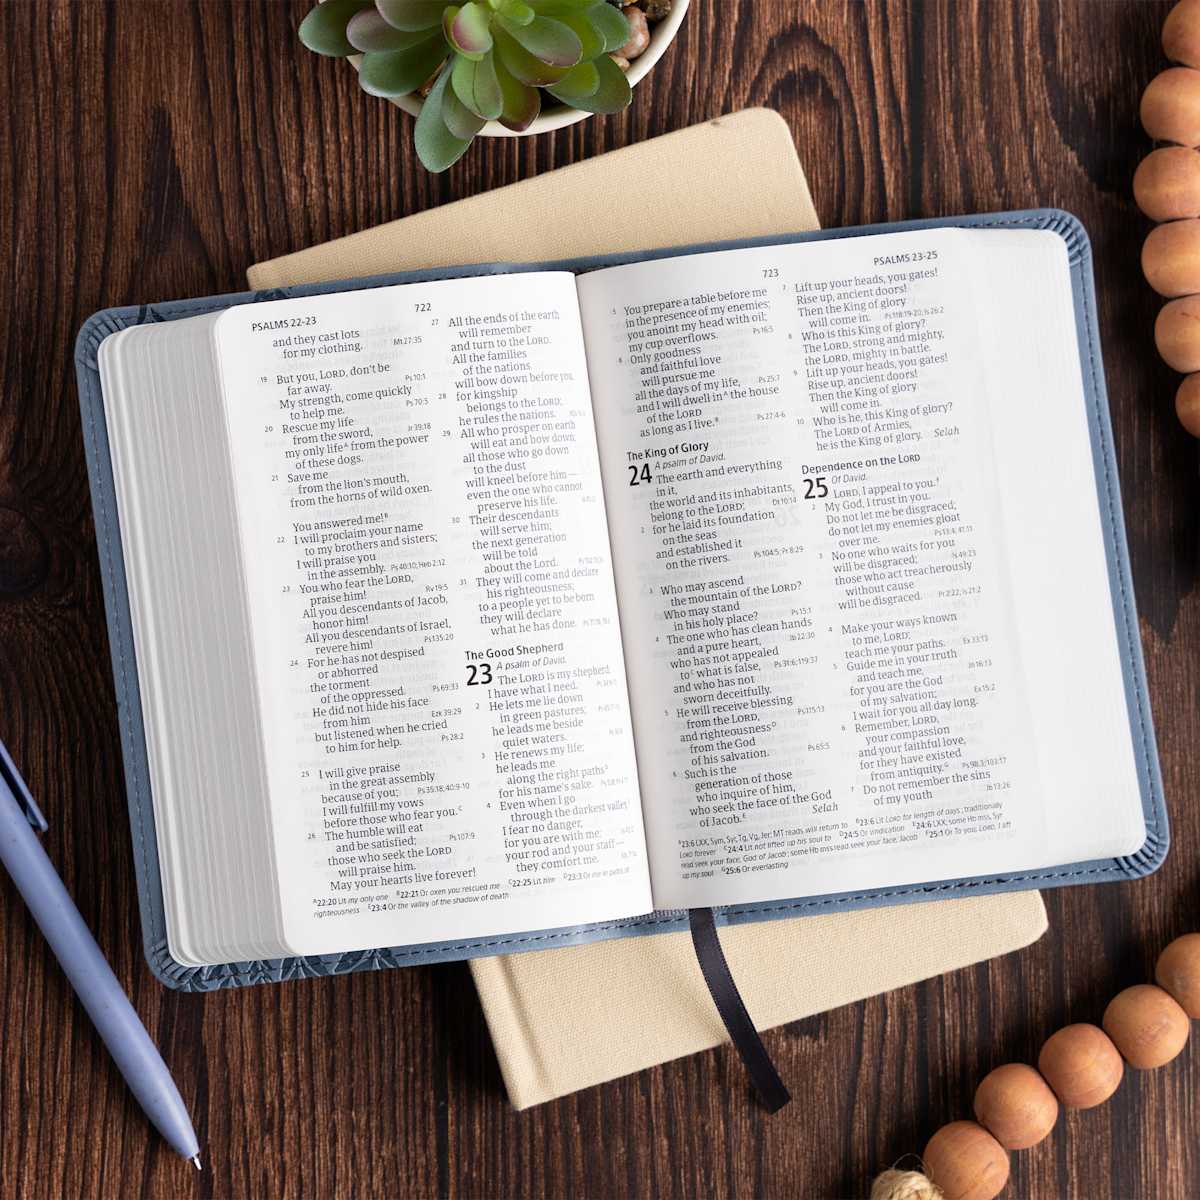 PSALMS 22-23
722
and they cast lots
for my clothing. Mt 27:35
19 But you, LORD, don't be
far away. Ps 10:1
My strength, come quickly
to help me. Ps 70:5
20 Rescue my life
from the sword, Jr 39:18
my only lifeᴬ from the power
of these dogs.
21 Save me
from the lion's mouth,
from the horns of wild oxen.
You answered me!ᴮ
22 I will proclaim your name
to my brothers and sisters;
I will praise you
in the assembly. Ps 40:10; Heb 2:12
23 You who fear the LORD,
praise him! Rv 19:5
All you descendants of Jacob,
honor him!
All you descendants of Israel,
revere him! Ps 135:20
24 For he has not despised
or abhorred
the torment
of the oppressed. Ps 69:33
He did not hide his face
from him Ezk 39:29
but listened when he cried
to him for help. Ps 28:2
25 I will give praise
in the great assembly
because of you; Ps 35:18; 40:9-10
I will fulfill my vows
before those who fear you.ᶜ
26 The humble will eat Ps 107:9
and be satisfied;
those who seek the LORD
will praise him.
May your hearts live forever!
27 All the ends of the earth
will remember
and turn to the LORD.
All the families
of the nations
will bow down before you,
28 for kingship
belongs to the LORD;
he rules the nations.
29 All who prosper on earth
will eat and bow down;
all those who go down
to the dust
will kneel before him —
even the one who cannot
preserve his life.
30 Their descendants
will serve him;
the next generation
will be told
about the Lord.
31 They will come and declare
his righteousness;
to a people yet to be born
they will declare
what he has done.
The Good Shepherd
23 A psalm of David.
The LORD is my shepherd;
I have what I need.
2 He lets me lie down
in green pastures;
he leads me beside
quiet waters.
3 He renews my life;
he leads me
along the right pathsᴰ
for his name's sake.
4 Even when I go
through the darkest valley,ᴱ
I fear no danger,
for you are with me;
your rod and your staff —
they comfort me.
ᴬ22:20 Lit my only one ᴮ22:21 Or oxen you rescued me ᶜ22:25 Lit him ᴰ23:3 Or me in paths of
righteousness ᴱ23:4 Or the valley of the shadow of death
723
PSALMS 23-25
5 You prepare a table before me
in the presence of my enemies;
you anoint my head with oil;
my cup overflows. Ps 16:5
6 Only goodness
and faithful love
will pursue me
all the days of my life, Ps 25:7
and I will dwell inᴬ the house
of the LORD
as long as I live.ᴮ Ps 27:4-6
The King of Glory
24 A psalm of David.
The earth and everything
in it,
the world and its inhabitants,
belong to the LORD; Dt 10:14
2 for he laid its foundation
on the seas
and established it
on the rivers. Ps 104:5; Pr 8:29
3 Who may ascend
the mountain of the LORD?
Who may stand
in his holy place? Ps 15:1
4 The one who has clean hands
and a pure heart, Jb 22:30
who has not appealed
toᶜ what is false, Ps 31:6; 119:37
and who has not
sworn deceitfully.
5 He will receive blessing
from the LORD, Ps 115:13
and righteousnessᴰ
from the God
of his salvation. Ps 65:5
6 Such is the
generation of those
who inquire of him,
who seek the face of the God
of Jacob.ᴱ Selah
7 Lift up your heads, you gates!
Rise up, ancient doors!
Then the King of glory
will come in. Ps 118:19-20; Is 26:2
8 Who is this King of glory?
The LORD, strong and mighty,
the LORD, mighty in battle.
9 Lift up your heads, you gates!
Rise up, ancient doors!
Then the King of glory
will come in.
10 Who is he, this King of glory?
The LORD of Armies,
he is the King of glory. Selah
Dependence on the LORD
25 Of David.
LORD, I appeal to you.ᶠ
2 My God, I trust in you.
Do not let me be disgraced;
do not let my enemies gloat
over me. Ps 13:4; 41:11
3 No one who waits for you
will be disgraced; Is 49:23
those who act treacherously
without cause
will be disgraced. Pr 2:22; Is 21:2
4 Make your ways known
to me, LORD;
teach me your paths. Ex 33:13
5 Guide me in your truth
and teach me, Jn 16:13
for you are the God
of my salvation; Ex 15:2
I wait for you all day long.
6 Remember, LORD,
your compassion
and your faithful love,
for they have existed
from antiquity.ᴳ Ps 98:3; 103:17
7 Do not remember the sins
of my youth Jb 13:26
ᴬ23:6 LXX, Sym, Syr, Tg, Vg, Jer; MT reads will return to ᴮ23:6 Lit LORD for length of days; traditionally
LORD forever ᶜ24:4 Lit not lifted up his soul to ᴰ24:5 Or vindication ᴱ24:6 LXX; some Hb mss, Syr
read seek your face, God of Jacob; some Hb mss read seek your face, Jacob ᶠ25:1 Or To you, LORD, I lift
up my soul ᴳ25:6 Or everlasting